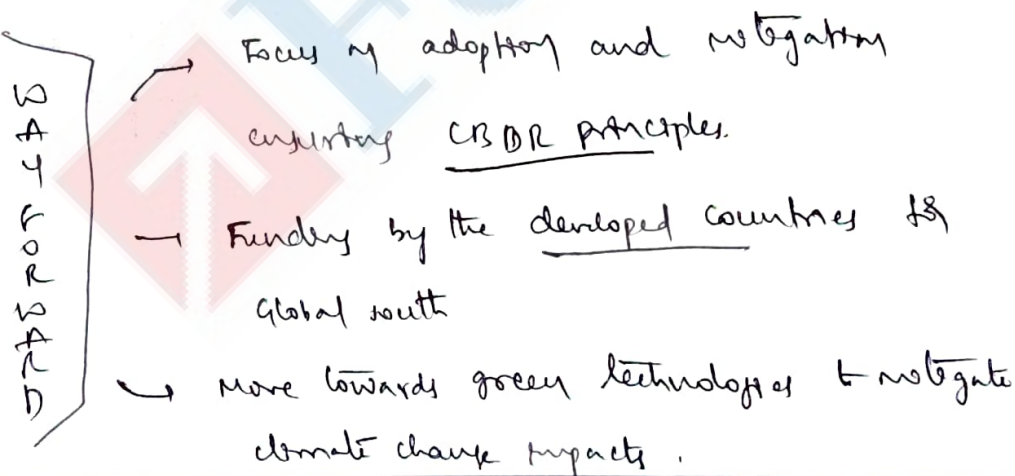 WAY FORWARD
Focus on adoption and mitigation
ensuring CBDR principles.
Funding by the developed countries for
Global south
Move towards green technologies to mitigate
climate change impacts.